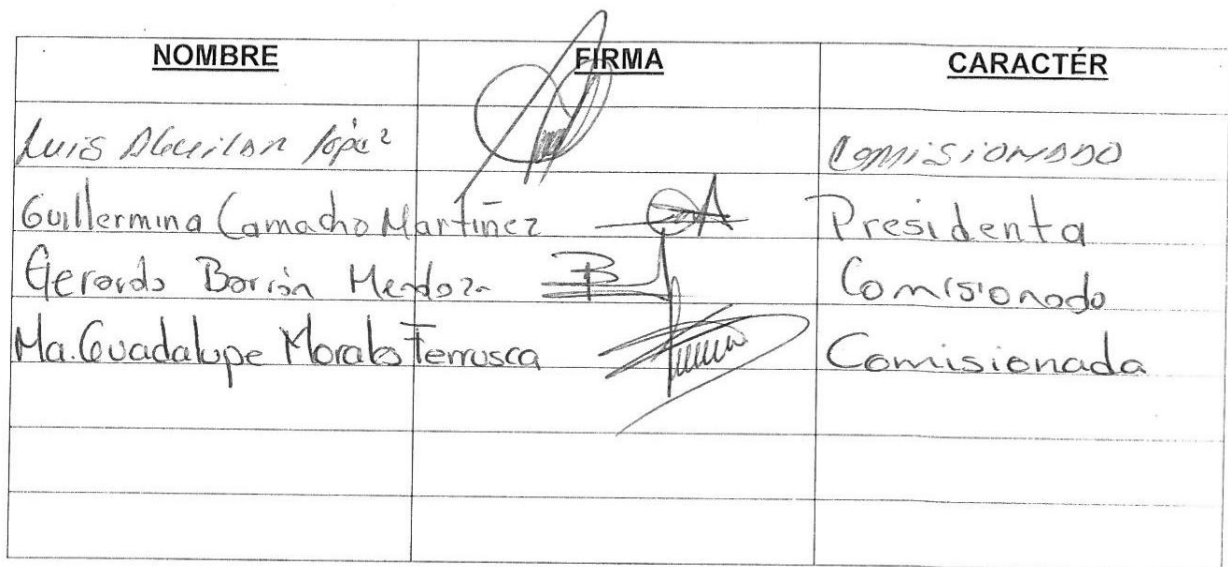 NOMBRE FIRMA CARACTÉR
Luis Aguilar López Comisionado
Guillermina Camacho Martínez Presidenta
Gerardo Barrón Mendoza Comisionado
Ma. Guadalupe Morales Ferrusca Comisionada